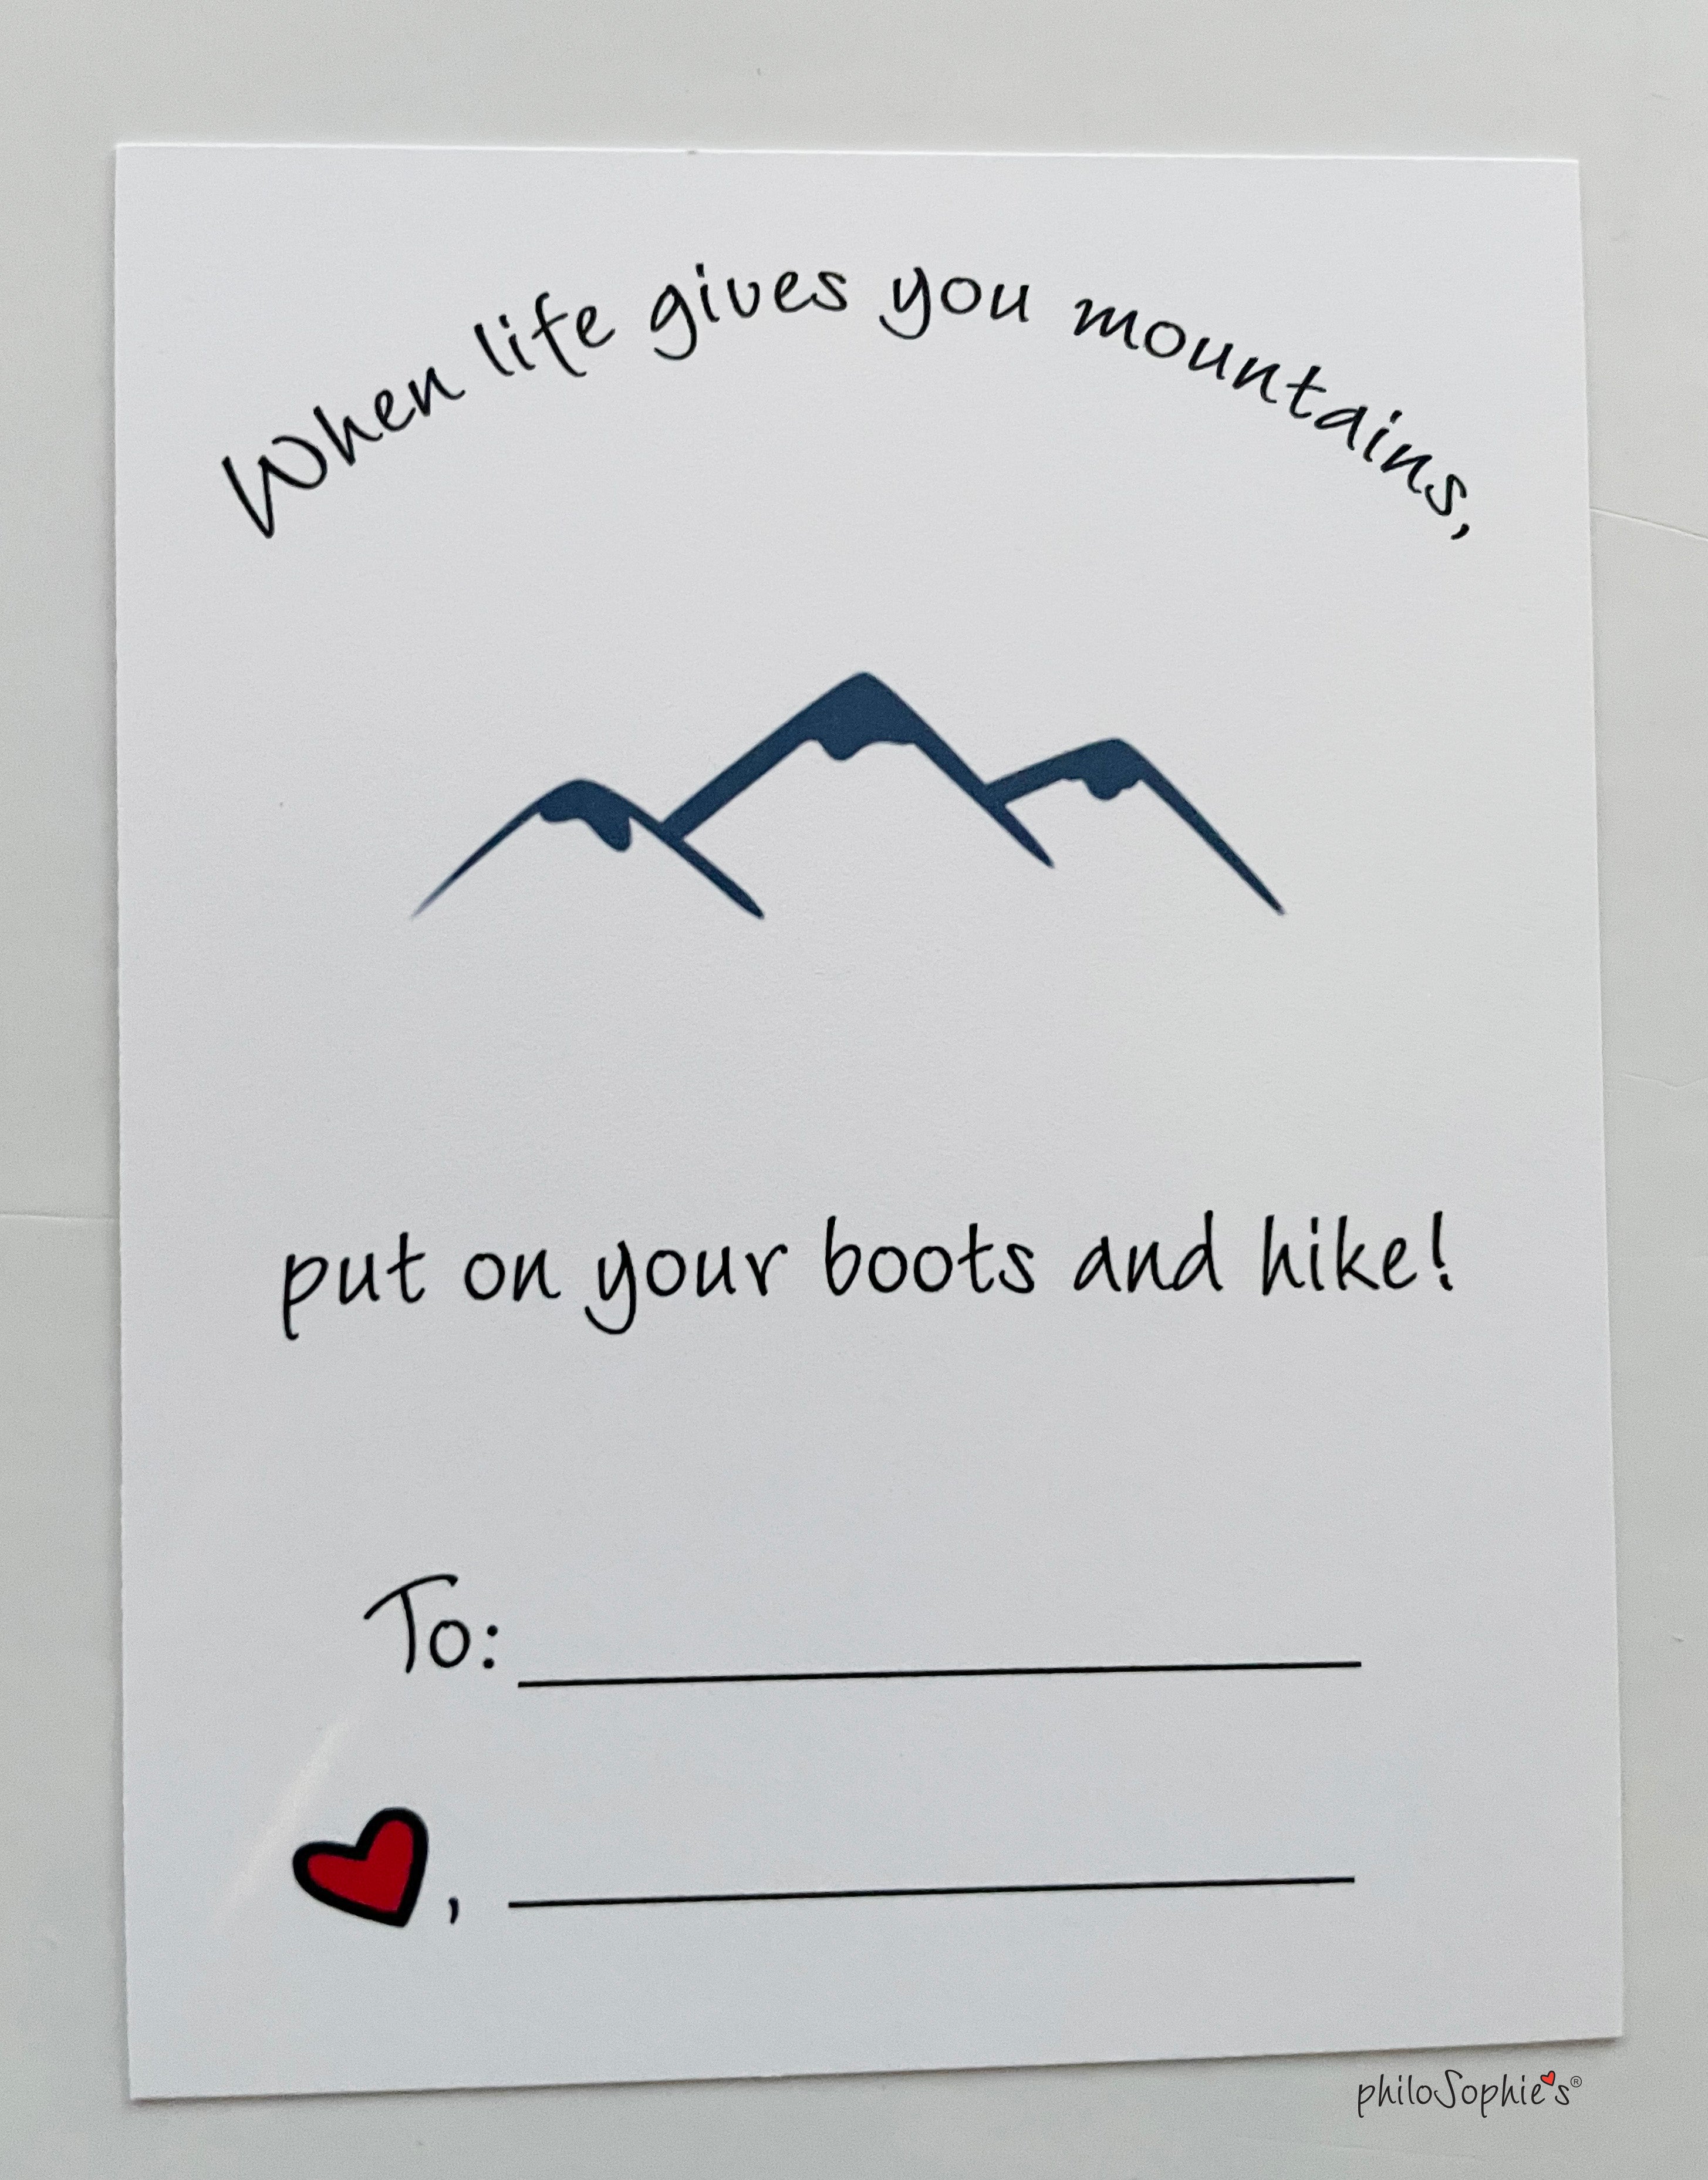 When life gives you mountains,
put on your boots and hike!
To:
,
philoSophie's®